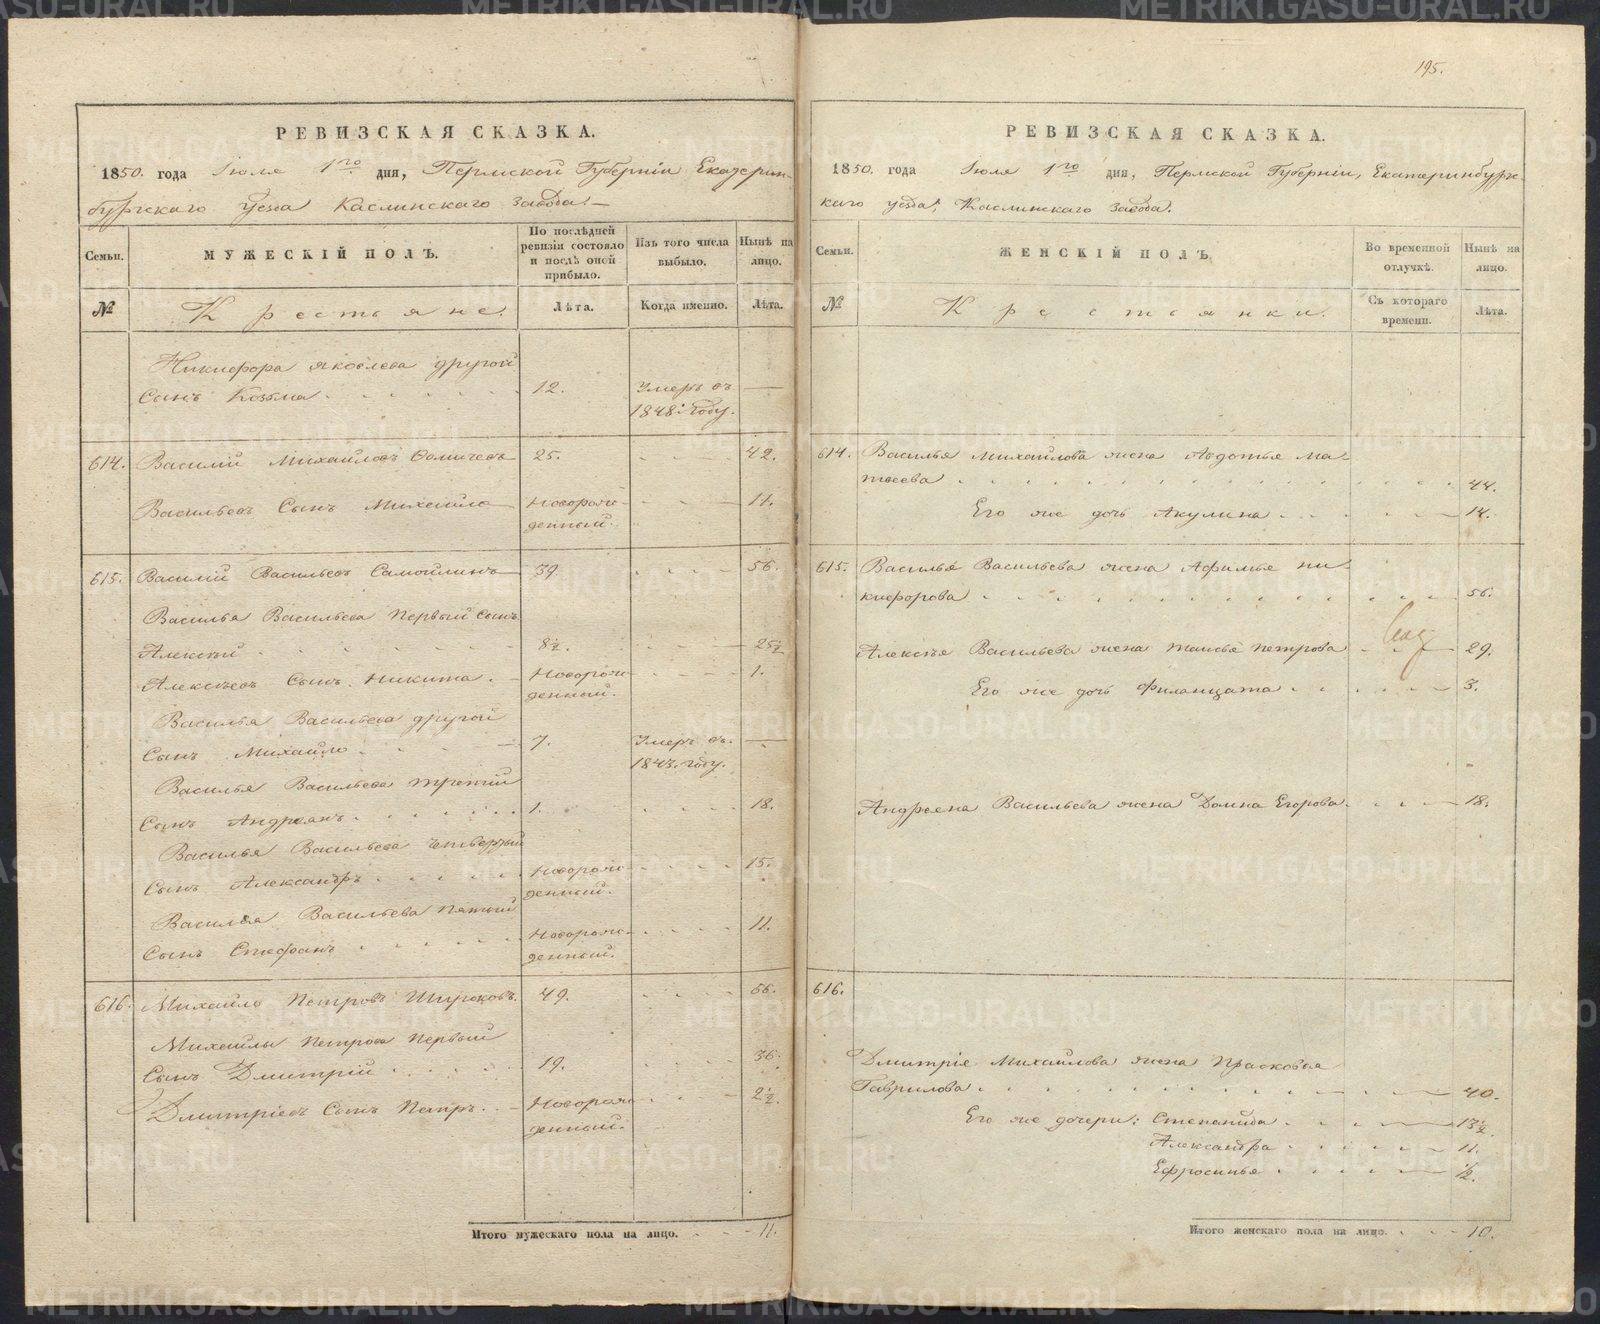 195.
РЕВИЗСКАЯ СКАЗКА.
1850. года Іюля 1го дня, Пермской Губерніи Екатерин-
бургскаго Уезда Каслинскаго завода.
Семьи.
МУЖЕСКІЙ ПОЛЪ.
По послѣдней ревизіи состояло и послѣ оной прибыло.
Изъ того числа выбыло.
Нынѣ на лицо.
№
Крестьяне.
Лѣта.
Когда именно.
Лѣта.
Никифора Яковлева другой
Сынъ Козьма 12. Умеръ въ —
1848: году.
614. Василій Михайловъ 25. 42.
Васильевъ Сынъ Михайло Новорож- 11.
денный.
615. Василій Васильевъ Самойлинъ 39. 56.
Василья Васильева первый Сынъ
Алексѣй 8½. 25½
Алексѣевъ Сынъ Никита. Новорож- 1.
денный.
Василья Васильева другой
Сынъ Михайло 7. Умеръ въ —
1843. году.
Василья Васильева третій
Сынъ Андреянъ 1. 18.
Василья Васильева четвертый
Сынъ Александръ Новорож- 15.
денный.
Василья Васильева пятый
Сынъ Стефанъ Новорож- 11.
денный.
616. Михайло Петровъ Широковъ. 49. 66.
Михайлы Петрова первый
Сынъ Дмитрій 19. 36.
Дмитріевъ Сынъ Петръ. Новорож- 2½.
денный.
Итого мужескаго пола на лицо. 11.
РЕВИЗСКАЯ СКАЗКА.
1850. года Іюля 1го дня, Пермской Губерніи, Екатеринбургс-
каго уезда, Каслинскаго завода.
Семьи.
ЖЕНСКІЙ ПОЛЪ
Во временной отлучкѣ.
Нынѣ на лицо.
№
Крестьянки.
Съ котораго времени.
Лѣта.
614. Василья Михайлова жена Авдотья Ма-
твеева 44.
Его же дочь Акулина 14.
615. Василья Васильева жена Афимья ни-
кифорова 56.
Алексѣя Васильева жена Таисья петрова 29.
Его же дочь Филанцата 3.
Андреяна Васильева жена Домна Егорова 18.
616.
Дмитріе Михайлова жена Прасковья
Гаврилова 40.
Его же дочери: Степанида 13½.
Александра 11.
Ефросинья ½.
Итого женскаго пола на лицо. 10.
METRIKI.GASO-URAL.RU